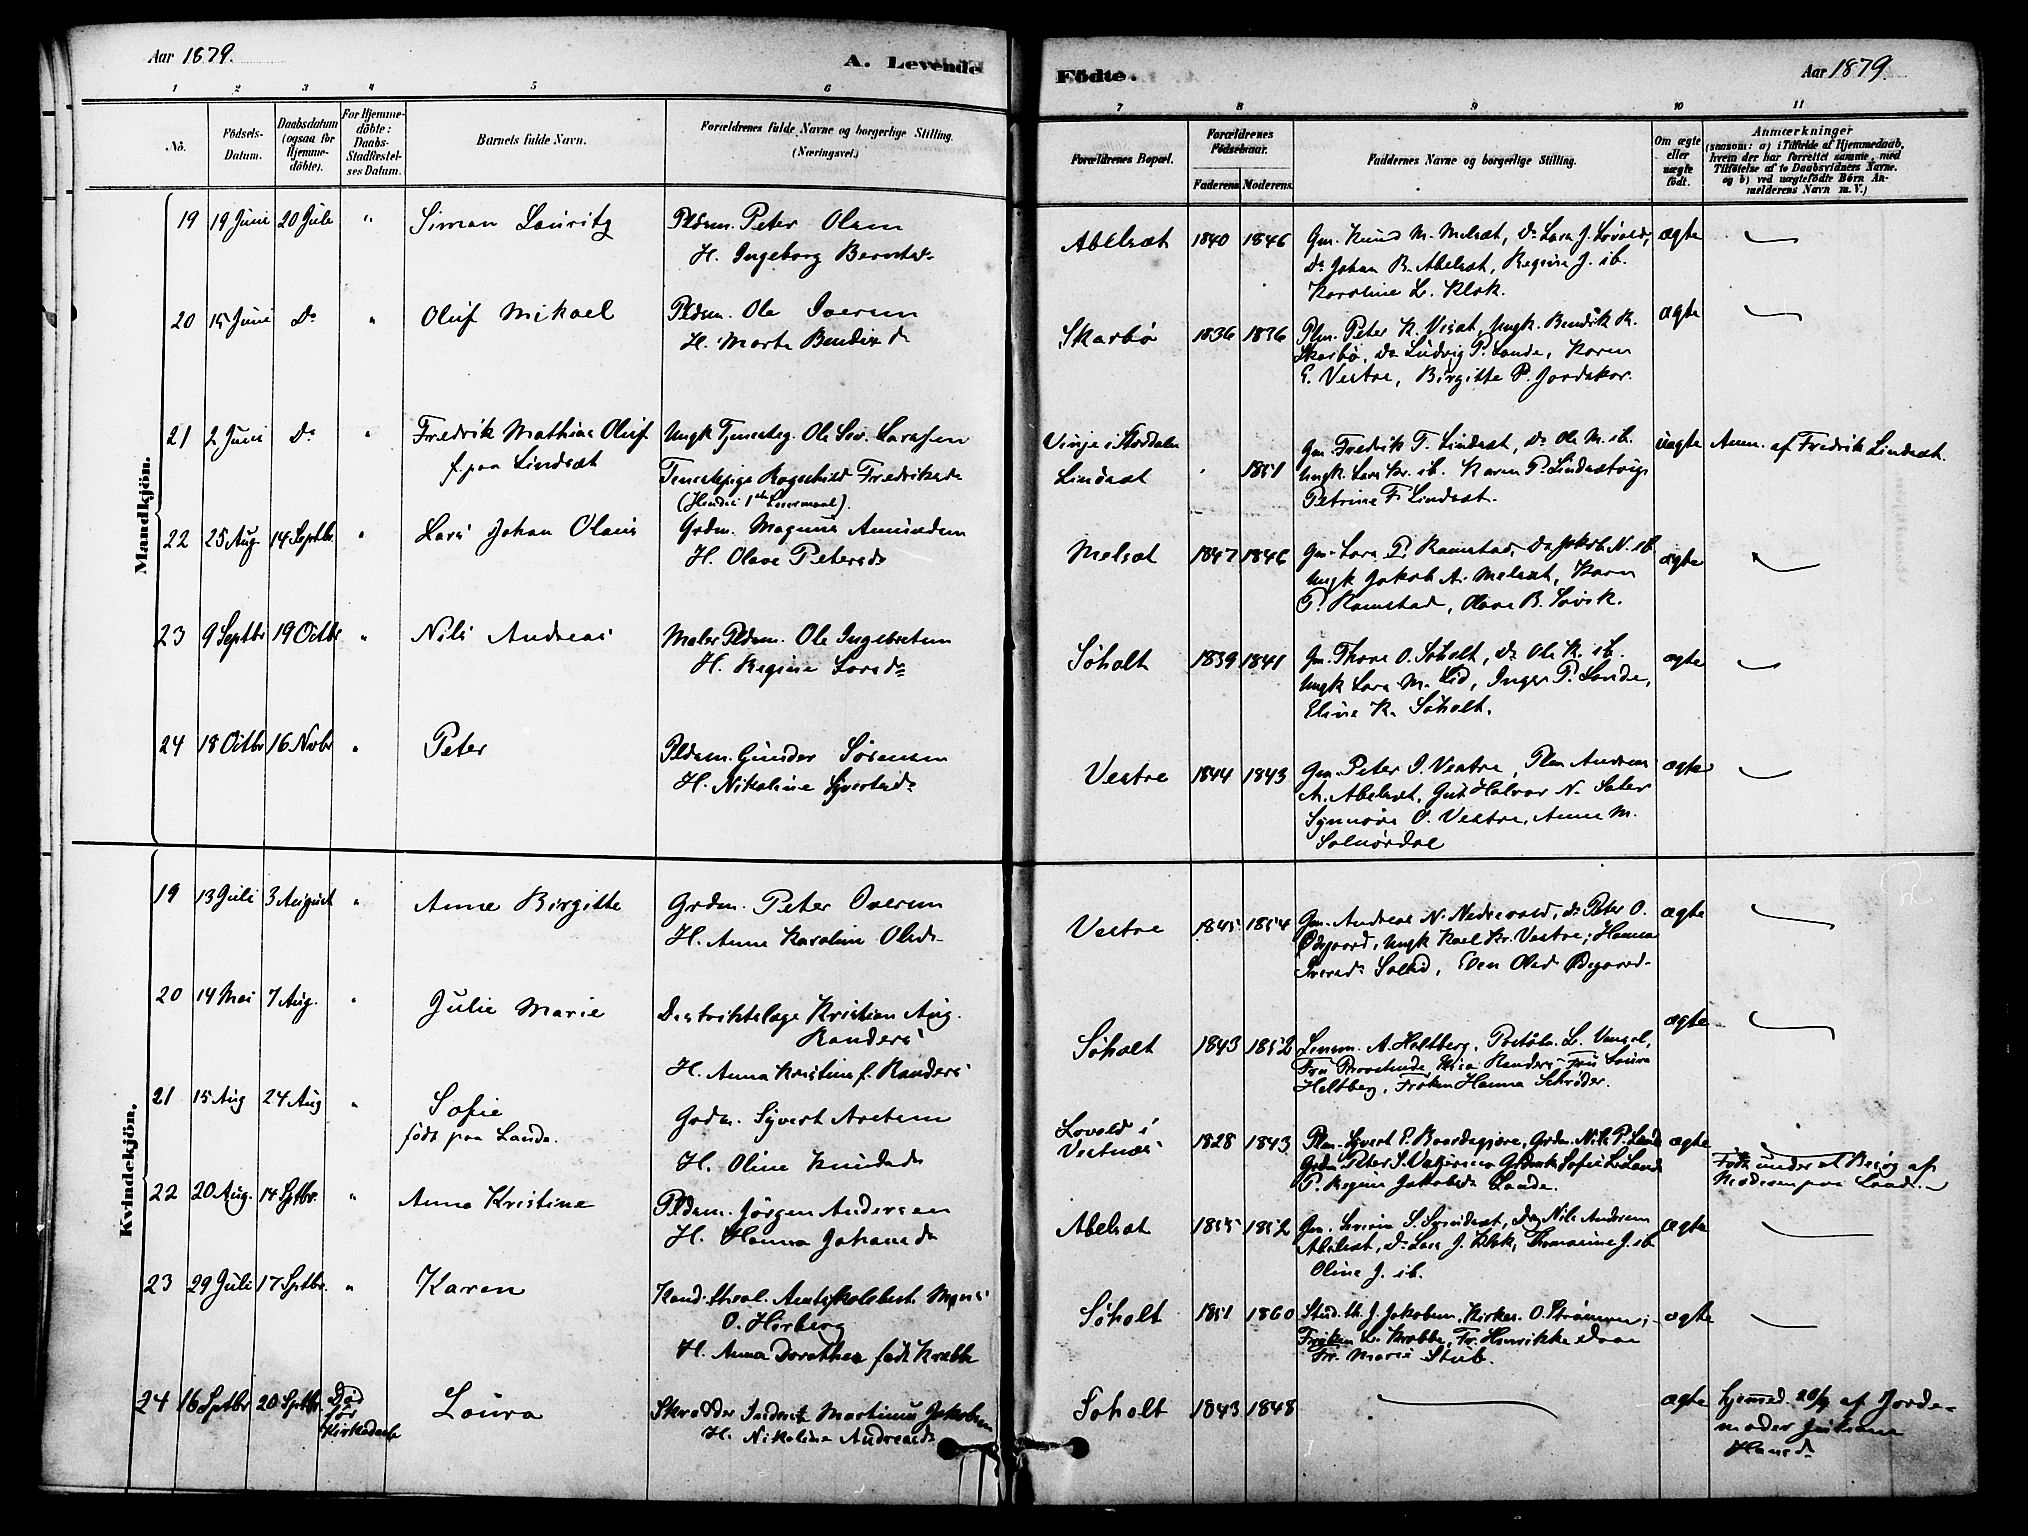 Aar 1879.
A. Levende
Födte.
Aar 1879.
1 2 3 4 5 6 7 8 9 10 11
No.
Födsels-Datum.
Daabsdatum (ogsaa for Hjemme-döbte).
For Hjemme-döbte: Daabs-Stadfæstelses Datum.
Barnets fulde Navn.
Forældrenes fulde Navne og borgerlige Stilling. (Næringsvei.)
Forældrenes Bopæl.
Forældrenes Födselsaar.
Faderens. Moderens.
Faddernes Navne og borgerlige Stilling.
Om ægte eller uægte födt.
Anmærkninger
(saasom: a) i Tilfælde af Hjemmedaab, hvem der har forrettet samme, med Tilföielse af to Daabsvidners Navne. og b) ved uægtefödte Börn Anmelderens Navn m. V.)
Mandkjön.
19 19 Juni 20 Juli " Simon Lauritz Pldsm. Peter Olsen
H. Ingeborg Berntsd.
Abelsæt 1840 1846 Gm. Knud M. Melsæt, Do Lars J. Lövold, ægte
Do Johan B. Abelsæt, Regine J. ib.
Karoline L. Klok.
20 15 Juni Do " Oluf Mikael Pldsm. Ole Iversen
H. Marte Bendixd
Skarbö 1836 1836 Plm. Peter K. Visæt, Ungk. Bendik K. ægte
Skarbö, Do Ludvig P. Lande, Karen
E. Vestre, Birgitte P. Jordskar.
21 2 Juni Do " Fredrik Mathias Oluf Ungk Tjenesteg. Ole Sev. Larssen
f. paa Lindsæt Tjenestepige Ragnhild Fredriksd
(Hendes 1ste Leiermaal).
Vinje i Stordalen
Lindsæt 1851 Gm. Fredrik T. Lindsæt, Do Ole M. ib. uægte Anm. af Fredrik Lindsæt.
Ungk. Lars Kr. ib. Karen P. Lindsætvig
Petrine F. Lindsæt.
22 25 Aug. 14 Septbr " Lars Johan Olaus Grdm. Magnus Amundsen
H. Olave Petersd
Melsæt 1847 1846 Gm. Lars P. Ramstad, Do Jakob N. ib. ægte
Ungk Jakob A. Melsæt, Karen
P. Ramstad, Olave B. Lövik.
23 9 Septbr 19 Octbr " Nils Andreas Maler Pldsm. Ole Ingebretsen
H. Regine Larsd
Söholt 1839 1841 Gm. Thore O. Söholt, Do Ole K. ib. ægte
Ungk Lars M. Lid, Inger P. Lande,
Eline K. Söholt.
24 18 Octbr 16 Novbr " Peter Pldsm. Gunder Sörensen
H. Nikoline Syvertsd
Vestre 1844 1843 Gm. Peter I. Vestre, Plm Andreas ægte
A. Abelsæt, Gut Halvor N. Sæter
Synnöve O. Vestre, Anne M.
Solnördal
Kvindekjön.
19 13 Juli 3 August " Anne Birgitte Grdm. Peter Iversen
H. Anne Karoline Olsd.
Vestre 1845 1854 Gm. Andreas N. Nedrevold, Do Peter O. ægte
Ödegaard, Ungk Karl Kr. Vestre, Hanna
Iversd, Elen Olsd Ödegaard.
20 14 Mai 7 Aug. " Julie Marie Distriktslæge Kristian Aug.
Randers
H. Anna Kristine f. Randers
Söholt 1843 1852 Lensm. A. Heltberg, L. Vengel, ægte
Fru Randers Fru Laura
Heltberg, Fröken Hanna Schröder.
21 15 Aug 24 Aug " Sofie Grdm. Syvert Aretsen
födt paa Lande. H. Oline Knudsd
Lovold i
Vestnes 1828 1843 Plm. Syvert P. Grdm. Nils P. Lande ægte
Grdm. Peter S. Sofie Lande
P. Regine Jakobsd Lande.
Födt under et Besög af
Moderen paa Lande.
22 20 Aug. 14 Sptbr. " Anna Kristine Pldsm. Jörgen Andersen
H. Hanna Johansd
Abelsæt 1855 1852 Gm. Nils Andersen ægte
Abelsæt, Do Lars J. Klok, Thomasine J. ib.
Oline J. ib.
23 29 Juli 17 Sptbr. " Karen Kand. theol. Amtsskolebest. Mons
O. Hörberg
H. Anna Dorothea födt Krabbe
Söholt 1851 1860 Stud. th. J. Jakobsen, Kirkes. O. Strömmen, ægte
Fröken L. Krabbe, Fr. Henrikke Daae
Fr. Marie Stub.
24 16 Sptbr 20 Sptbr. Död för Kirkedaab Laura Skrædder Inderst Martinus Jakobsen
H. Nikoline Andreasd
Söholt 1843 1848 ægte hjemmed. 20/9 af Jorde-
moder Juliane
Hansd